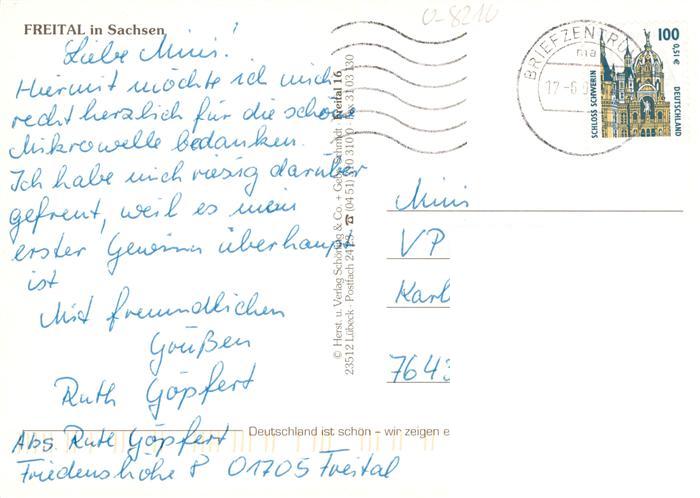 FREITAL in Sachsen
Liebe Minis!
Hiermit möchte ich mich
recht herzlich für die schöne
Mikrowelle bedanken.
Ich habe mich riesig darüber
gefreut, weil es mein
erster Gewinn überhaupt
ist
Mit freundlichen
Grüßen
Ruth Göpfert
Abs. Ruth Göpfert
Friedenshöhe 8 01705 Freital
Deutschland ist schön – wir zeigen e
© Herst. u. Verlag Schöning & Co. + Gebr. Schmidt
23512 Lübeck · Postfach 24
Freital 16
0-8210
BRIEFZENTRUM
ma
17-6
100
0,51 €
SCHLOSS SCHWERIN
DEUTSCHLAND
Minis
VP
Karl
7643